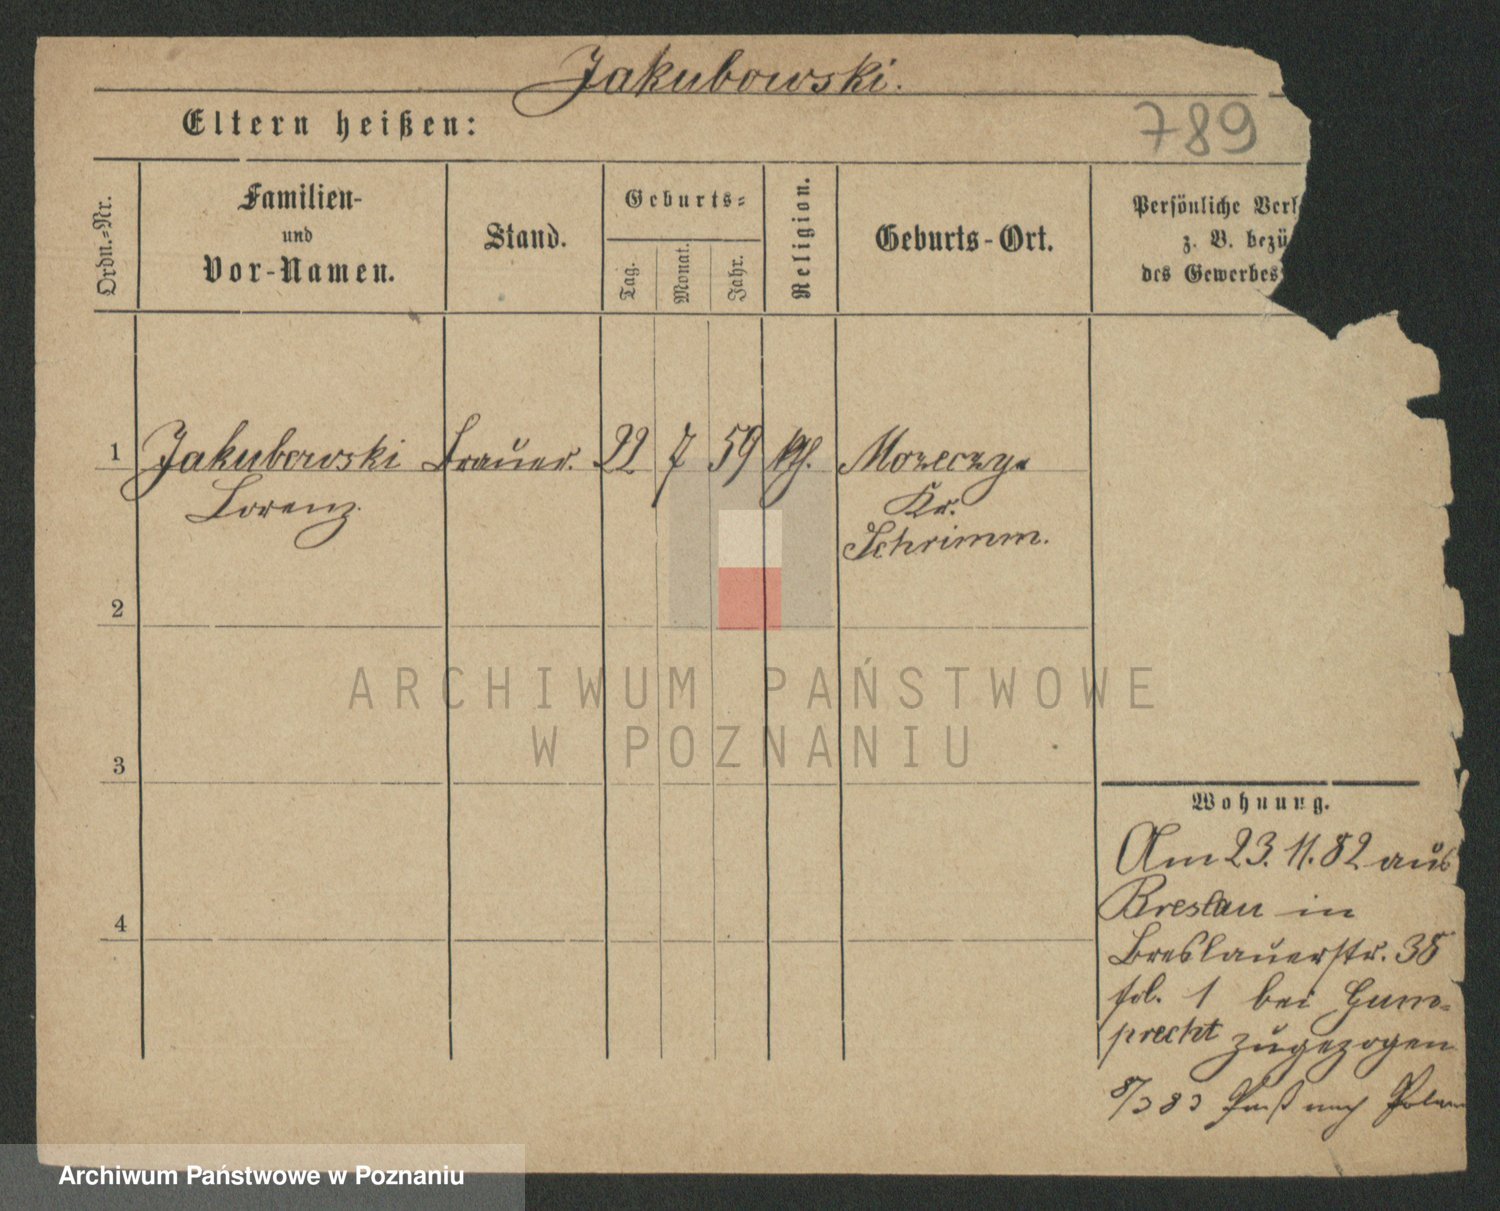 Jakubowski.
Eltern heißen:
789
Ordn.-Nr.
Familien-
und
Vor-Namen.
Stand.
Geburts-
Tag.
Monat.
Jahr.
Religion.
Geburts-Ort.
Persönliche Verh
z. B. bezü
des Gewerbes
1 Jakubowski Brauer. 22 7 59 kth. Morzeczyn
Lorenz. Kr.
Schrimm.
2
3
4
Wohnung.
Am 23.11.82 aus
Breslau in
Breslauerstr. 38
fol. 1 bei Gum-
precht zugezogen
8/3 83 Paß nach Polen
ARCHIWUM PAŃSTWOWE
W POZNANIU
Archiwum Państwowe w Poznaniu